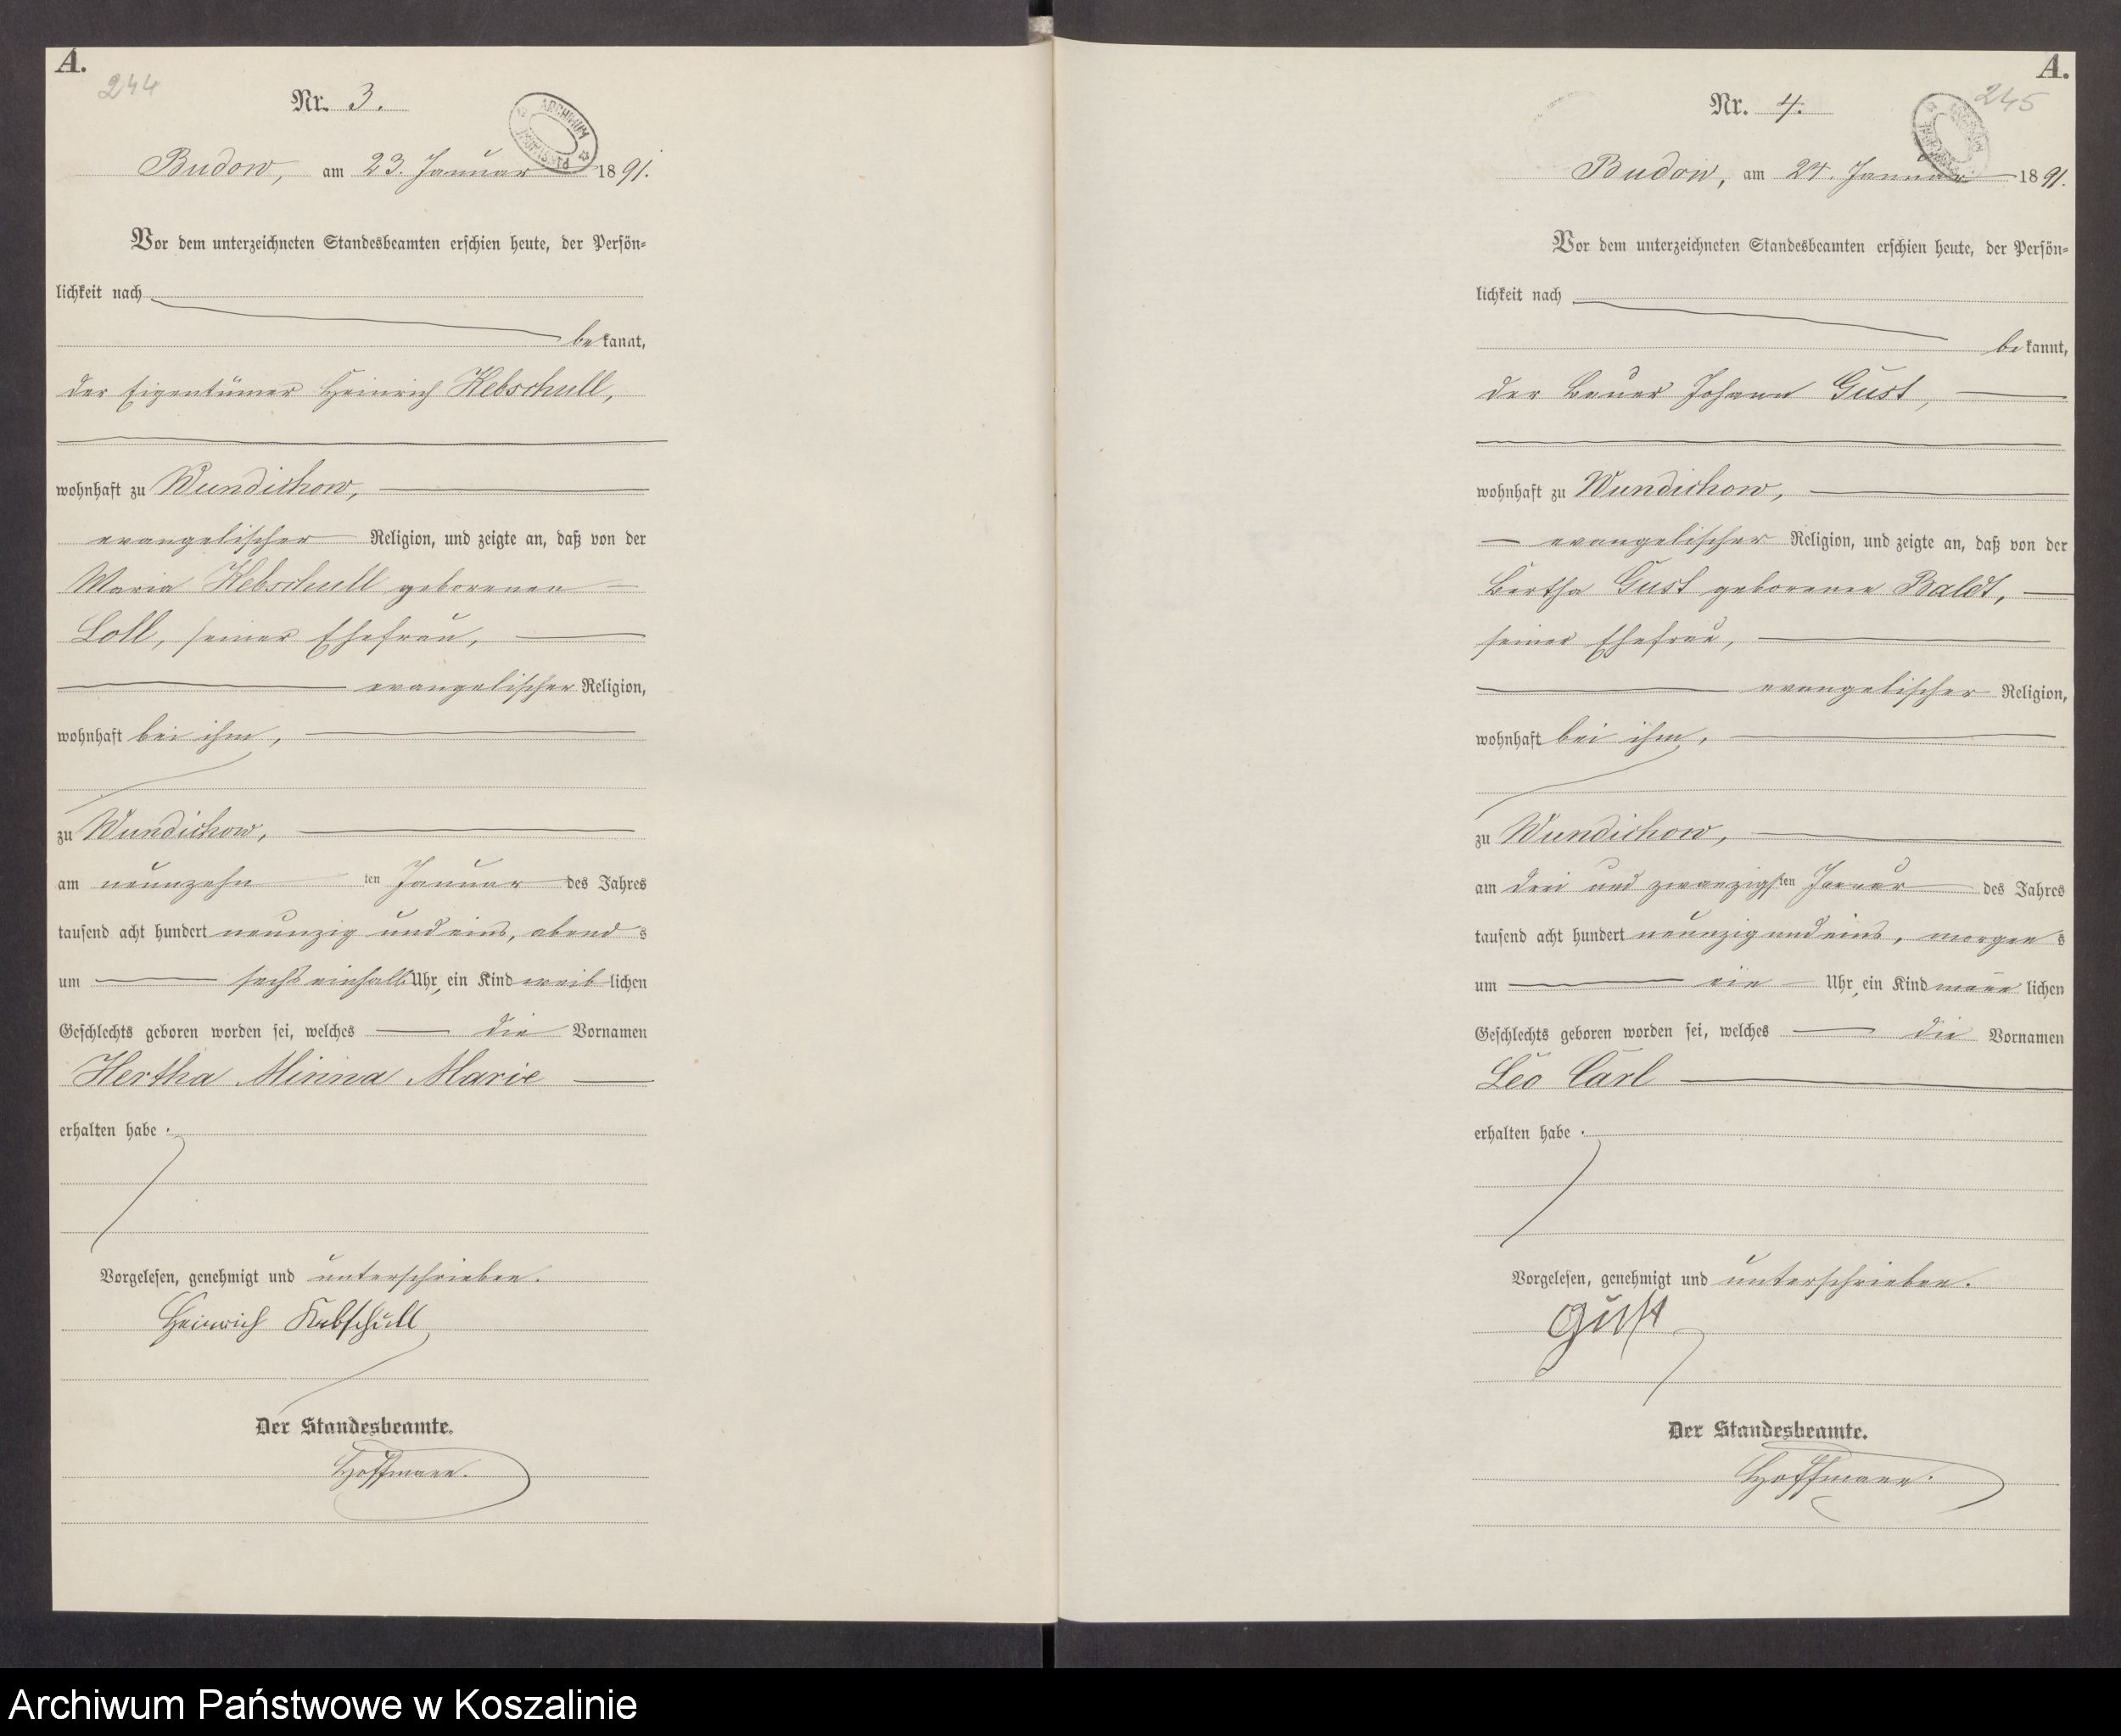 A.
244
Nr. 3.
ARCHIWUM PAŃSTWOWE
Budow, am 23. Januar 1891.
Vor dem unterzeichneten Standesbeamten erschien heute, der Persön-
lichkeit nach
be kannt,
der Eigentümer Heinrich Kebschull,
wohnhaft zu Wundichow,
evangelischer Religion, und zeigte an, daß von der
Maria Kebschull geborenen
Loll, seiner Ehefrau,
evangelischer Religion,
wohnhaft bei ihm,
zu Wundichow,
am neunzehn ten Januar des Jahres
tausend acht hundert neunzig und eins, abend s
um sechs einhalb Uhr, ein Kind weib lichen
Geschlechts geboren worden sei, welches die Vornamen
Hertha Minna Marie
erhalten habe.
Vorgelesen, genehmigt und unterschrieben.
Heinrich Kebschull
Der Standesbeamte.
Hoffmann.
A.
245
Nr. 4.
Budow, am 24. Januar 1891.
Vor dem unterzeichneten Standesbeamten erschien heute, der Persön-
lichkeit nach
be kannt,
der Bauer Johann Gust,
wohnhaft zu Wundichow,
evangelischer Religion, und zeigte an, daß von der
Bertha Gust geborenen Baldt,
seiner Ehefrau,
evangelischer Religion,
wohnhaft bei ihm,
zu Wundichow,
am drei und zwanzigsten Januar des Jahres
tausend acht hundert neunzig und eins, morgen s
um ein Uhr, ein Kind männ lichen
Geschlechts geboren worden sei, welches die Vornamen
Leo Carl
erhalten habe.
Vorgelesen, genehmigt und unterschrieben.
Gust
Der Standesbeamte.
Hoffmann.
Archiwum Państwowe w Koszalinie